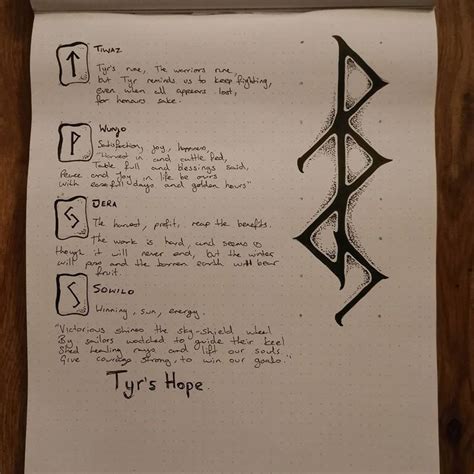 Tiwaz
Tyr's rune, The warriors rune,
but Tyr reminds us to keep fighting,
even when all appears lost,
for honours sake.
Wunjo
Satisfaction, joy, happiness,
"Harvest in and cattle fed,
Table full and blessings said,
Peace and Joy in life be ours
with easeful days and golden hours"
Jera
The harvest, profit, reap the benefits.
The work is hard, and seems
though it will never end, but the winter
will pass and the barren earth will bear
fruit.
Sowilo
Winning, sun, energy.
"Victorious shines the sky-shield wheel
By sailors watched to guide their keel
Shed healing rays and lift our souls
Give courage strong, to win our goals."
Tyr's Hope.